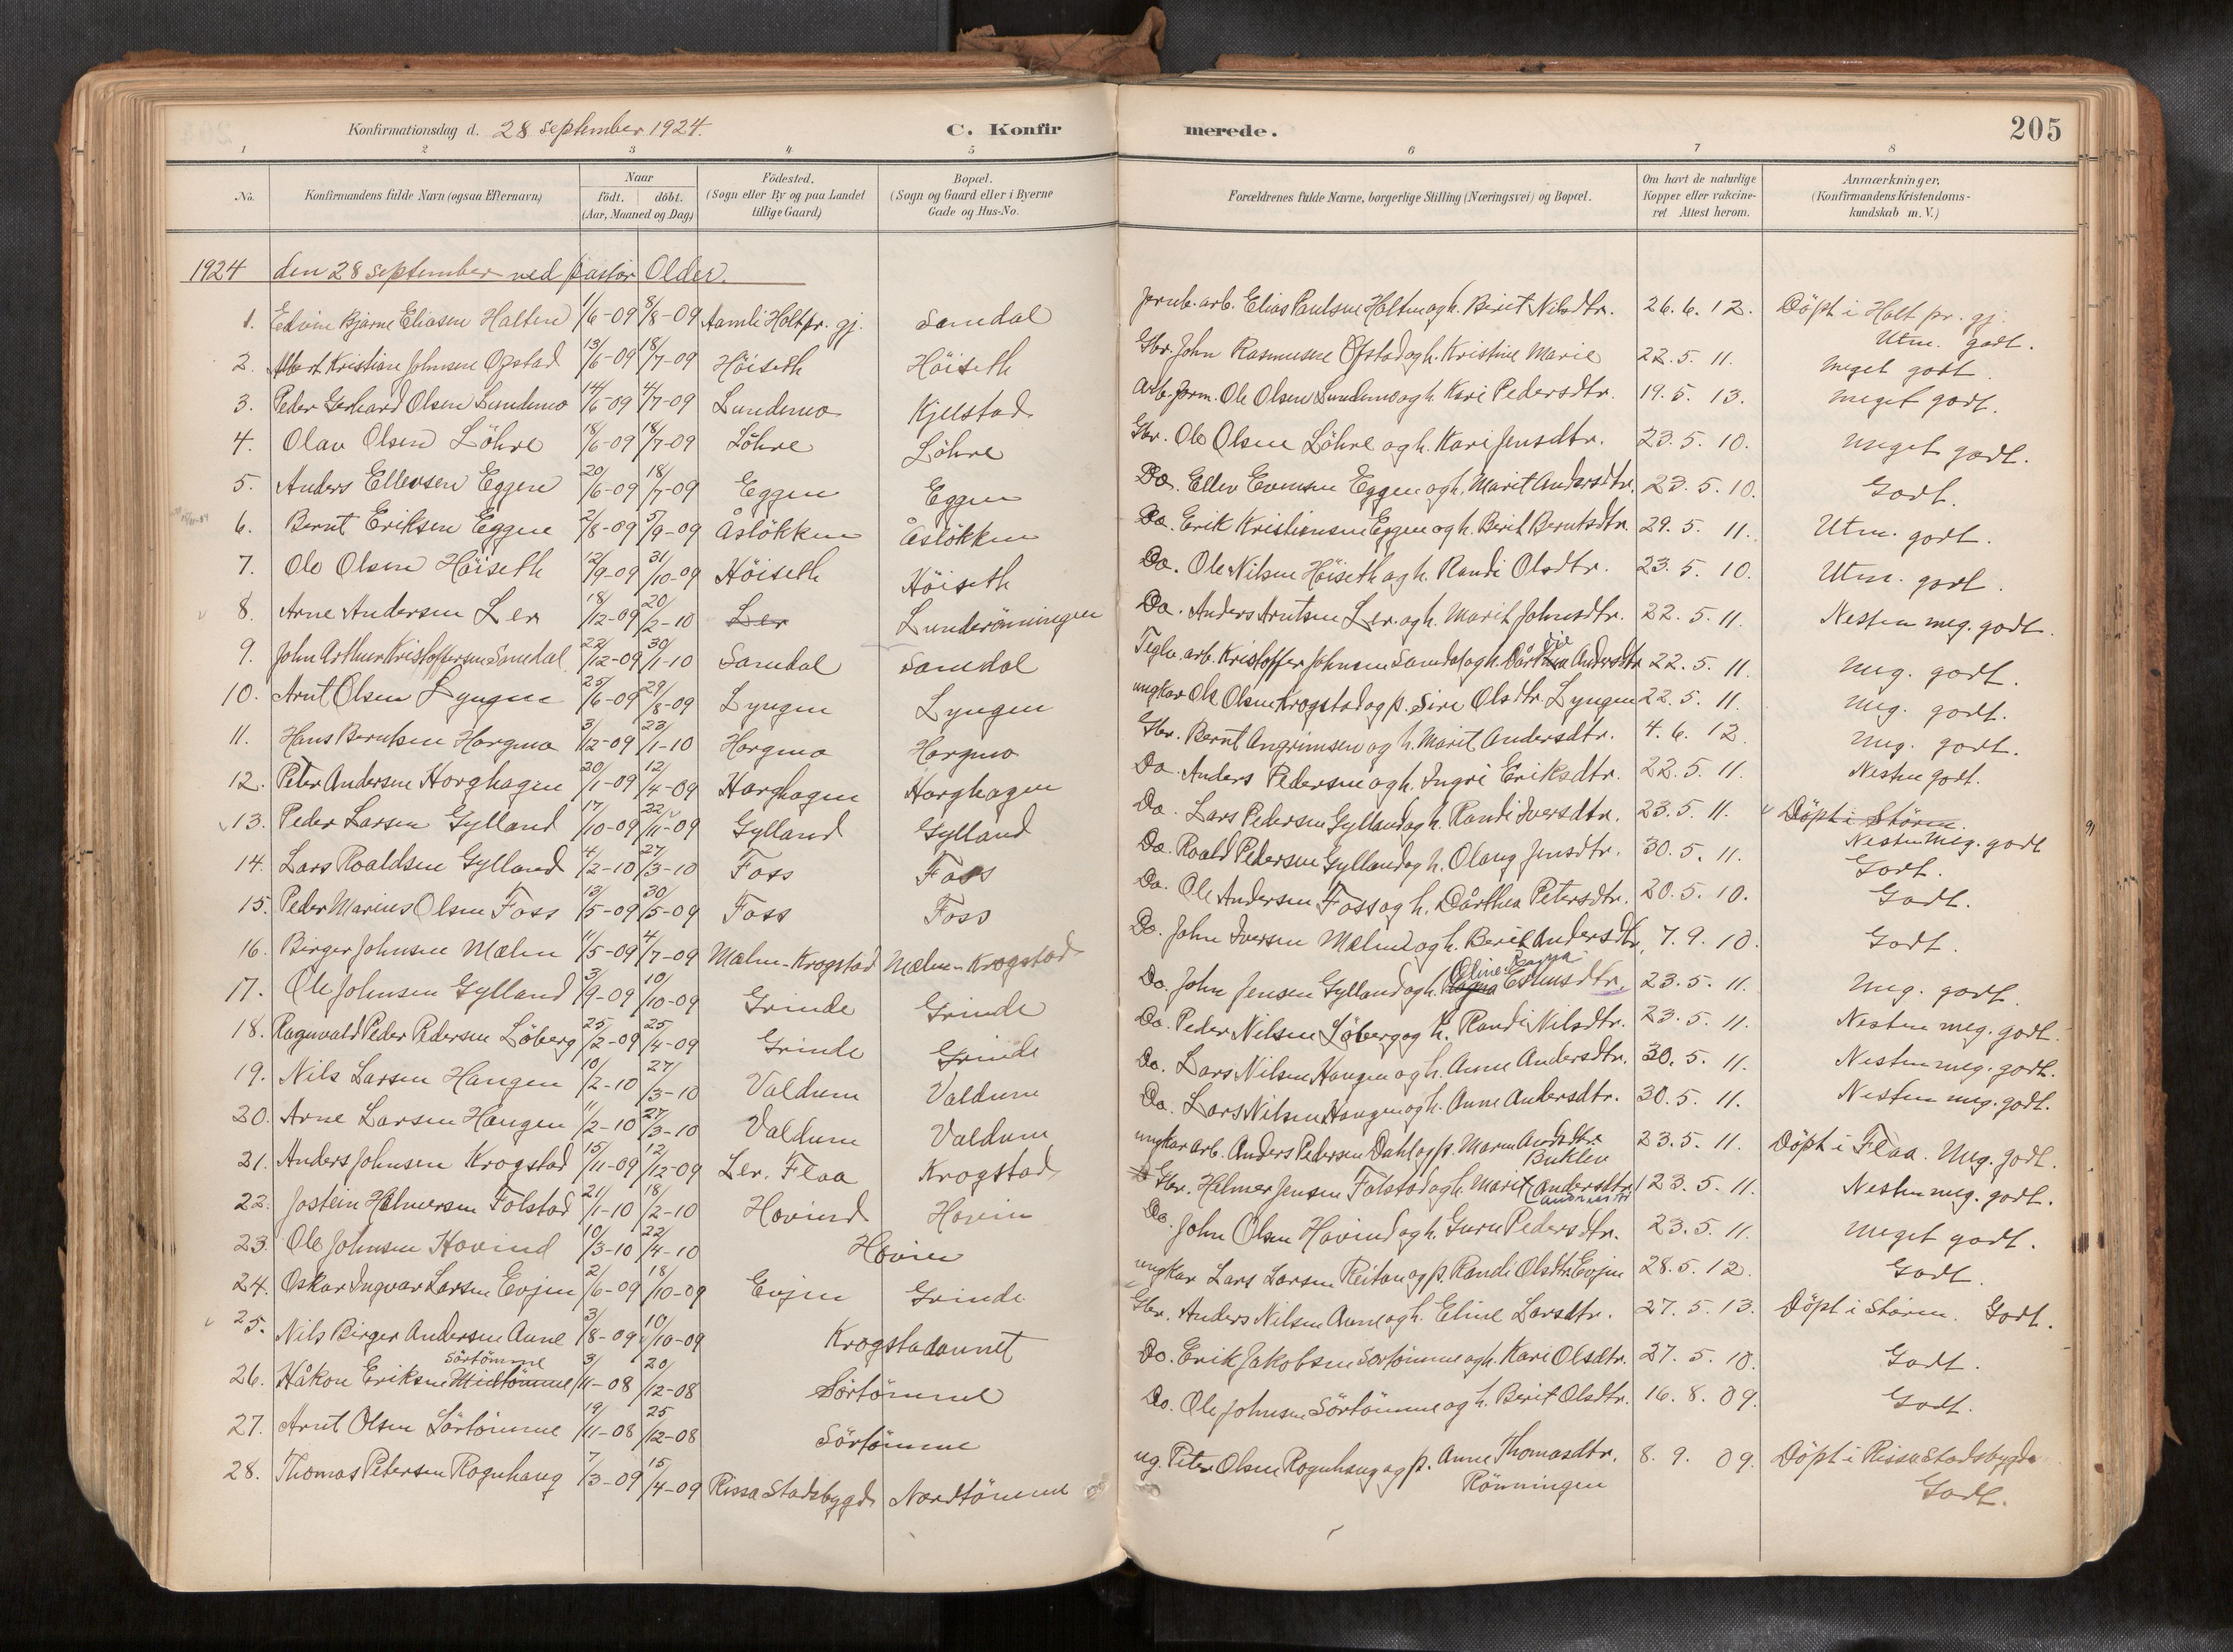 Konfirmationsdag d. 28 september 1924. C. Konfirmerede. 205
1 2 3 4 5 6 7 8
No. Konfirmandens fulde Navn (ogsaa Efternavn) Naar født. døbt. (Aar, Maaned og Dag) Fødested. (Sogn eller By og paa Landet tillige Gaard) Bopæl. (Sogn og Gaard eller i Byerne Gade og Hus-No. Forældrenes fulde Navne, borgerlige Stilling (Næringsvei) og Bopæl. Om havt de naturlige Kopper eller vakcineret Attest herom. Anmærkninger, (Konfirmandens Kristendomskundskab m. V.)
1924 den 28 september ved pastor Older.
1. Edvin Bjarne Eliasen Halten 1/6-09 8/8-09 Aamli Holt pr. gj. Samdal Jernb. arb. Elias Paulsen Halten og h. Berit Nilsdtr. 26. 6. 12. Döpt i Holt pr. gj. Utm. godt.
2. Albert Kristian Johnsen Ofstad 13/6-09 18/7-09 Höiseth Höiseth Gbr. John Rasmussen Ofstad og h. Kristine Marie 22. 5. 11. Meget godt.
3. Peder Gerhard Olsen Lundemo 14/6-09 4/7-09 Lundemo Kjelstad Arb. form. Ole Olsen Lundemo og h. Kari Pedersdtr. 19. 5. 13. Meget godt.
4. Olav Olsen Löhre 18/6-09 18/7-09 Löhre Löhre Gbr. Ole Olsen Löhre og h. Kari Jensdtr. 23. 5. 10. Meget godt.
5. Anders Ellevsen Eggen 20/6-09 18/7-09 Eggen Eggen Do. Ellev Evensen Eggen og h. Marit Andersdtr. 23. 5. 10. Godt.
6. Bernt Eriksen Eggen 2/8-09 5/9-09 Åslökken Åslökken Do. Erik Kristiansen Eggen og h. Berit Berntsdtr. 29. 5. 11. Utm. godt.
7. Ole Olsen Höiseth 12/9-09 31/10-09 Höiseth Höiseth Do. Ole Nilsen Höiseth og h. Randi Olsdtr. 23. 5. 10. Utm. godt.
8. Arne Andersen Ler 18/12-09 20/2-10 Ler Lunderönningen Do. Anders Arntsen Ler og h. Marit Johnsdtr. 22. 5. 11. Nesten meg. godt.
9. John Arthur Kristoffersen Samdal 22/12-09 30/1-10 Samdal Samdal Teglv. arb. Kristoffer Johnsen Samdal og h. Dårthea Andersdtr 22. 5. 11. Meg. godt.
10. Arnt Olsen Lyngen 25/6-09 29/8-09 Lyngen Lyngen ungkar Ole Olsen Krogstad og p. Siri Olsdtr. Lyngen 22. 5. 11. Meg. godt.
11. Hans Berntsen Horgmo 3/12-09 23/1-10 Horgmo Horgmo Gbr. Bernt Angrimsen og h. Marit Andersdtr. 4. 6. 12. Meg. godt.
12. Peter Andersen Horghagen 20/1-09 12/4-09 Horghagen Horghagen Do. Anders Pedersen og h. Ingri Eriksdtr. 22. 5. 11. Nesten godt.
13. Peder Larsen Gylland 17/10-09 22/11-09 Gylland Gylland Do. Lars Pedersen Gylland og h. Randi Iversdtr. 23. 5. 11. Döpt i Stören. Nesten meg. godt
14. Lars Roaldsen Gylland 4/2-10 27/3-10 Foss Foss Do. Roald Pedersen Gylland og h. Olaug Jensdtr. 30. 5. 11. Godt.
15. Peder Marius Olsen Foss 13/5-09 30/5-09 Foss Foss Do. Ole Andersen Foss og h. Dårthea Petersdtr. 20. 5. 10. Godt.
16. Birger Johnsen Mælen 11/5-09 4/7-09 Mælen-Krogstad Mælen-Krogstad Do. John Iversen Mælen og h. Berit Andersdtr. 7. 9. 10. Godt.
17. Ole Johnsen Gylland 3/9-09 10/10-09 Grinde Grinde Do. John Jensen Gylland og h. Ragna Oline Ragna Estensdtr. 23. 5. 11. Meg. godt.
18. Ragnvald Peder Pedersen Löberg 25/2-09 25/4-09 Grinde Grinde Do. Peder Nilsen Löberg og h. Randi Nilsdtr. 23. 5. 11. Nesten meg. godt.
19. Nils Larsen Haugen 10/2-10 27/3-10 Valdum Valdum Do. Lars Nilsen Haugen og h. Anne Andersdtr. 30. 5. 11. Nesten meg. godt.
20. Arne Larsen Haugen 11/2-10 27/3-10 Valdum Valdum Do. Lars Nilsen Haugen og h. Anne Andersdtr. 30. 5. 11. Nesten meg. godt.
21. Anders Johnsen Krogstad 15/11-09 12/12-09 Ler. Flaa Krogstad ungkar arb. Anders Pedersen Dahl og p. Maren Andsdtr. Buklev 23. 5. 11. Döpt i Flaa. Meg. godt.
22. Jostein Halmersen Folstad 21/1-10 18/2-10 Hovind Hovin Gbr. Helmer Jensen Folstad og h. Marit Andersdtr. 23. 5. 11. Nesten meg. godt.
23. Ole Johnsen Hovind 10/3-10 22/4-10 Hovin Do. John Olsen Hovind og h. Guru Pedersdtr. 23. 5. 11. Meget godt.
24. Oskar Ingvar Larsen Evjen 2/6-09 18/10-09 Evjen Grinde ungkar Lars Larsen Reitan og p. Randi Olsdtr. Evjen 28. 5. 12. Godt.
25. Nils Birger Andersen Aune 3/8-09 10/10-09 Krogstadaunet Gbr. Anders Nilsen Aune og h. Eline Larsdtr. 27. 5. 13. Döpt i Stören. Godt.
26. Håkon Eriksen Midtömme Sörtömme 3/11-08 20/12-08 Sörtömme Do. Erik Jakobsen Sörtömme og h. Kari Olsdtr. 27. 5. 10. Godt.
27. Arnt Olsen Sörtömme 19/11-08 25/12-08 Sörtömme Do. Ole Johnsen Sörtömme og h. Berit Olsdtr. 16. 8. 09. Godt.
28. Thomas Petersen Rognhaug 7/3-09 15/4-09 Rissa Stadsbygd Nordtömme ug. Peter Olsen Rognhaug og p. Anne Thomasdtr. Rönningen 8. 9. 09. Döpt i Rissa Stadsbygda Godt.